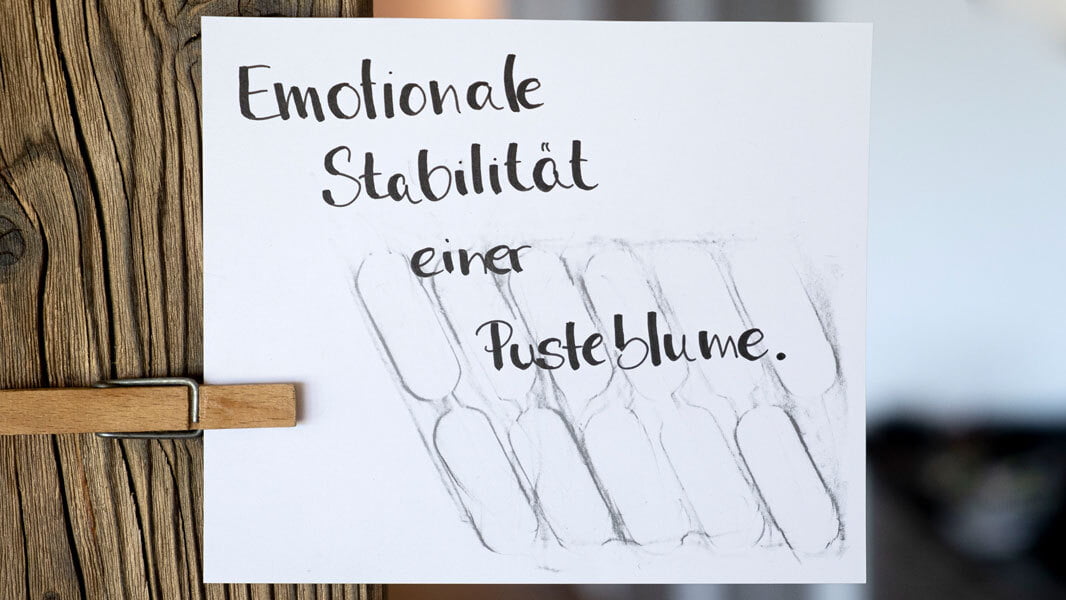 Emotionale
Stabilität
einer
Pusteblume.